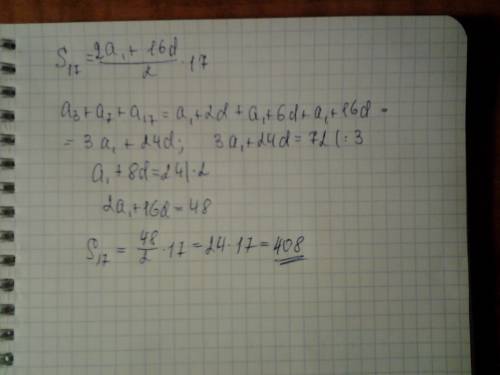 S₁₇ = (2a₁ + 16d)/2 · 17
a₃ + a₇ + a₁₇ = a₁ + 2d + a₁ + 6d + a₁ + 16d =
= 3a₁ + 24d; 3a₁ + 24d = 72 | : 3
a₁ + 8d = 24 | · 2
2a₁ + 16d = 48
S₁₇ = 48/2 · 17 = 24 · 17 = 408